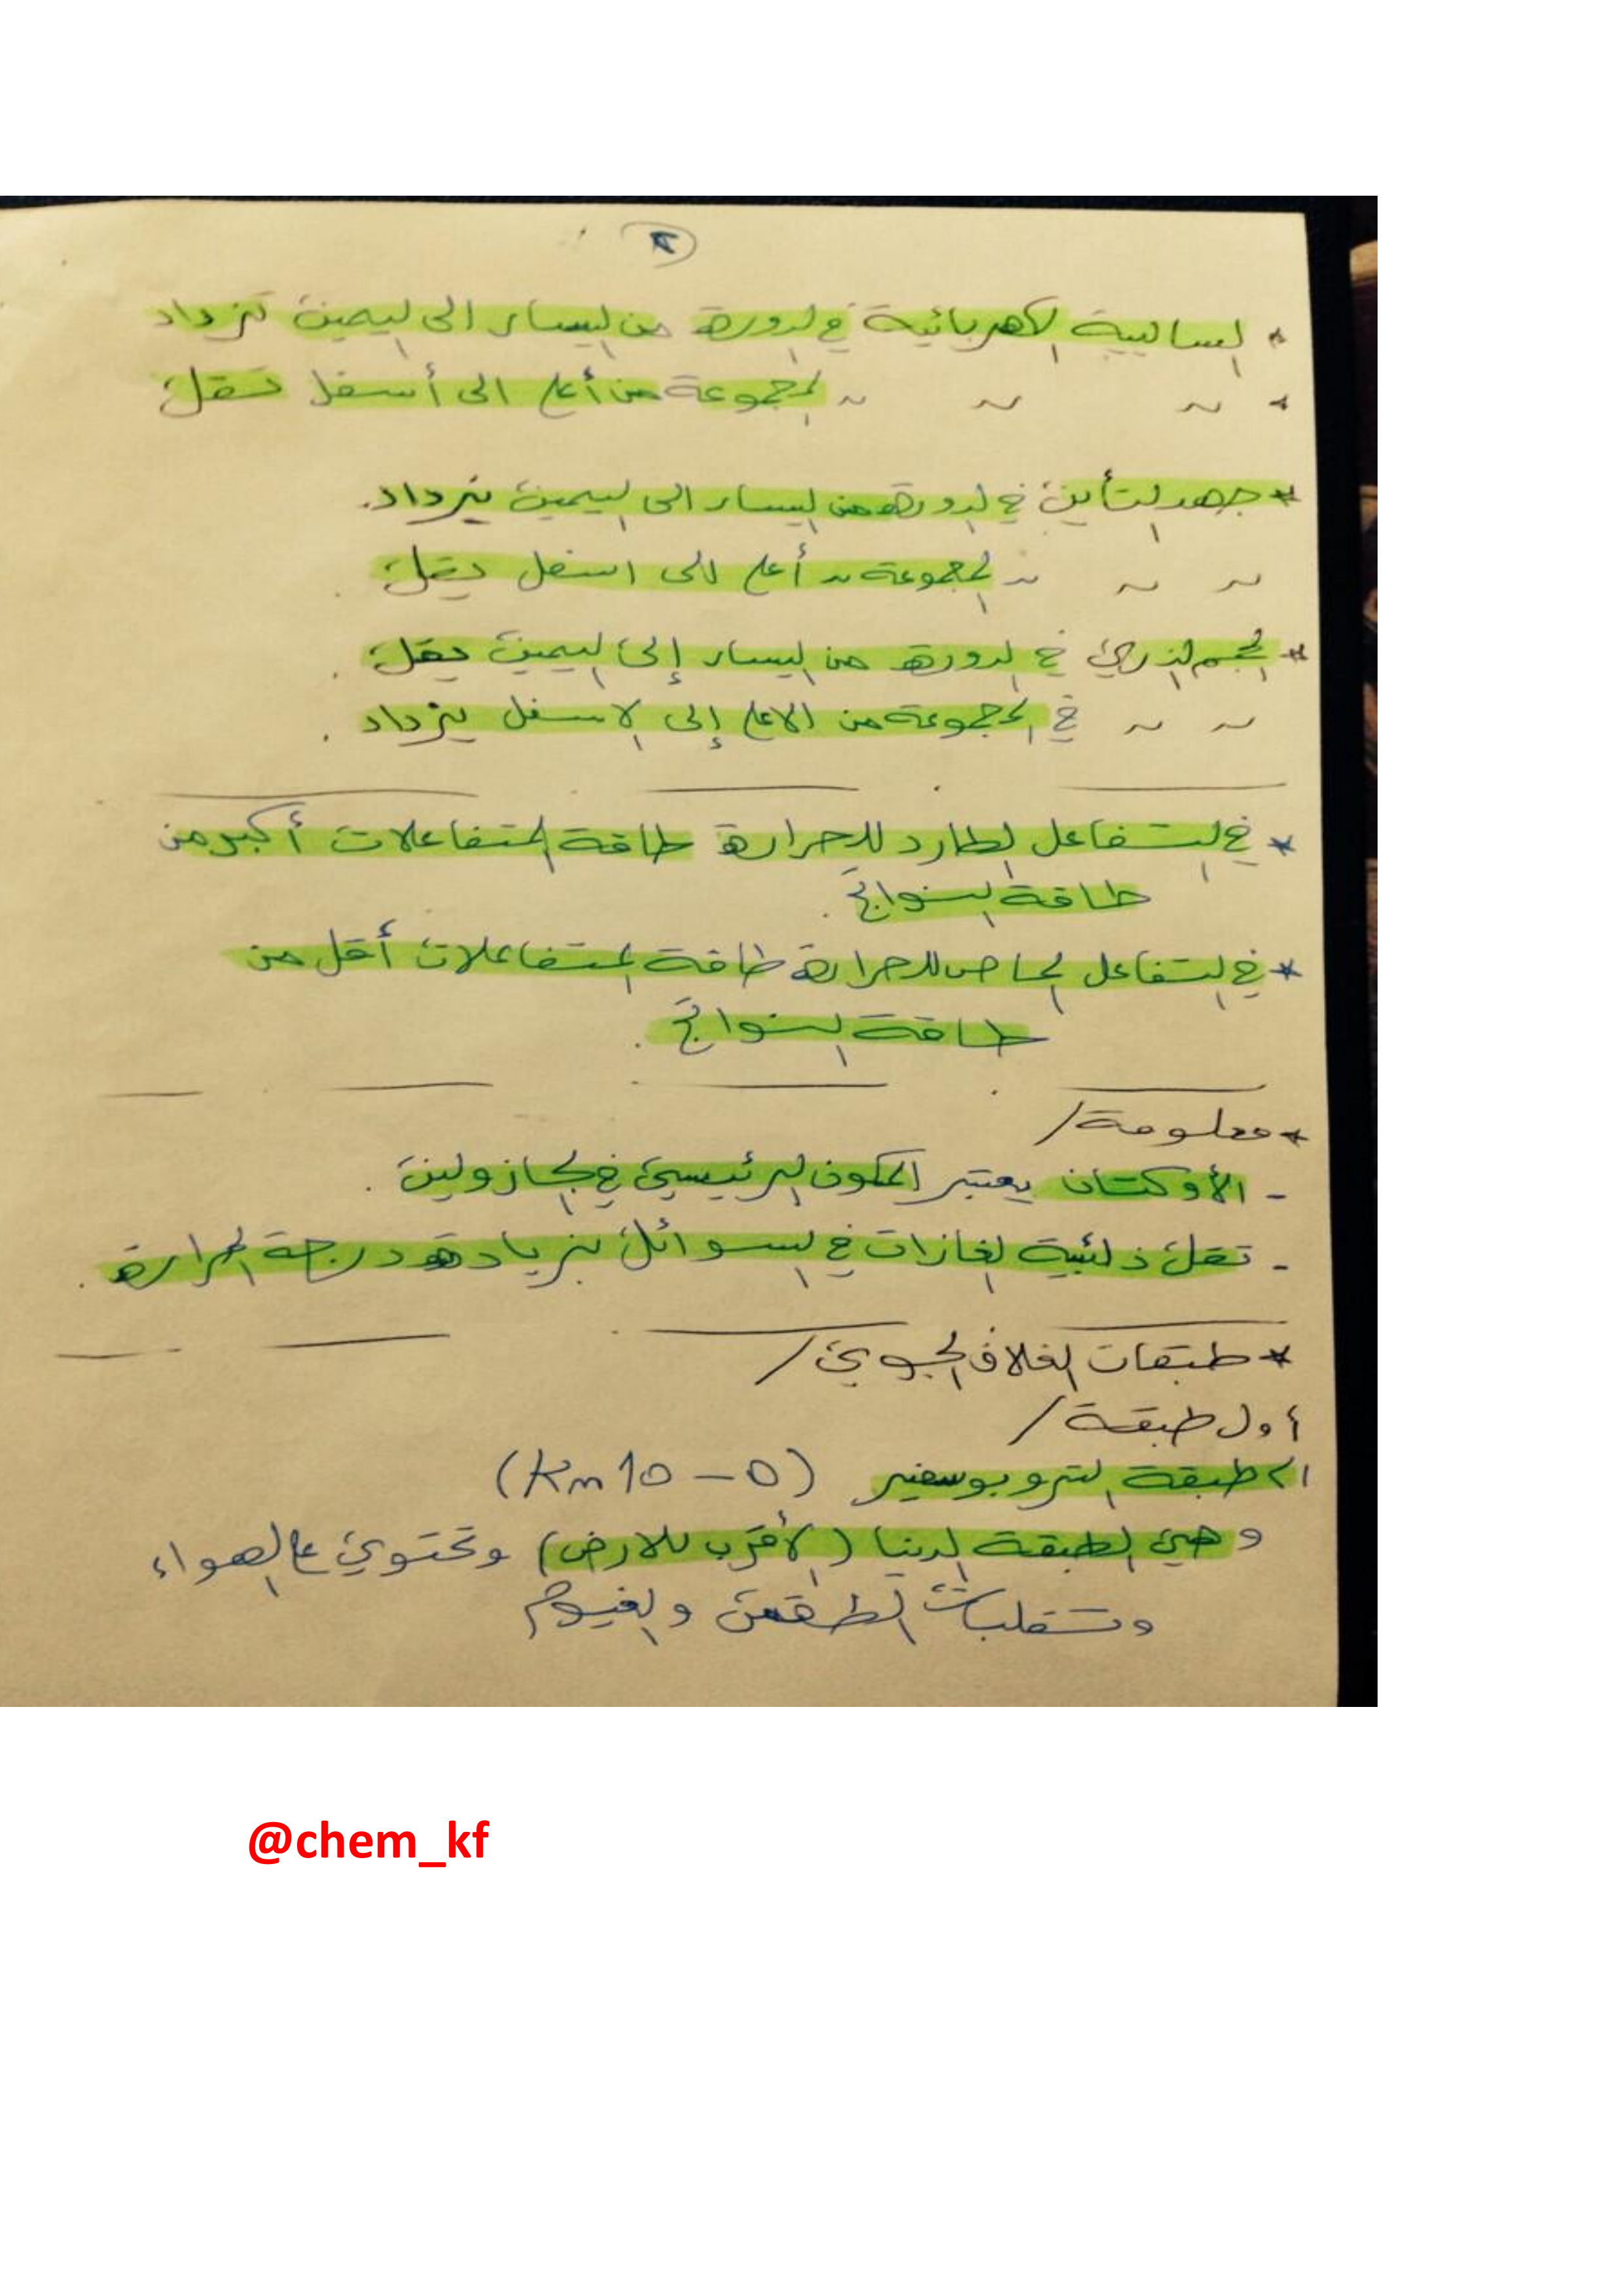 ٢
* السالبية الكهربائية في الدورة من اليسار الى اليمين تزداد
* ~ ~ ~ المجموعة من أعلى الى أسفل تقل
* جهد التأين في الدورة من اليسار الى اليمين يزداد.
~ ~ ~ المجموعة ~ أعلى الى اسفل يقل.
* الحجم الذري في الدورة من اليسار إلى اليمين يقل.
~ ~ في المجموعة من الاعلى إلى الاسفل يزداد.
* في التفاعل الطارد للحرارة طاقة المتفاعلات أكبر من
طاقة النواتج.
* في التفاعل الماص للحرارة طاقة المتفاعلات أقل من
طاقة النواتج.
* معلومة/
- الأوكتان يعتبر المكون الرئيسي في الجازولين.
- تقل ذائبية الغازات في السوائل بزيادة درجة الحرارة.
* طبقات الغلاف الجوي/
أول طبقة/
١/ طبقة التروبوسفير (Km 10 - 0)
وهي الطبقة الدنيا (الأقرب للارض) وتحتوي على الهواء
وتقلبات الطقس والغيوم
@chem_kf